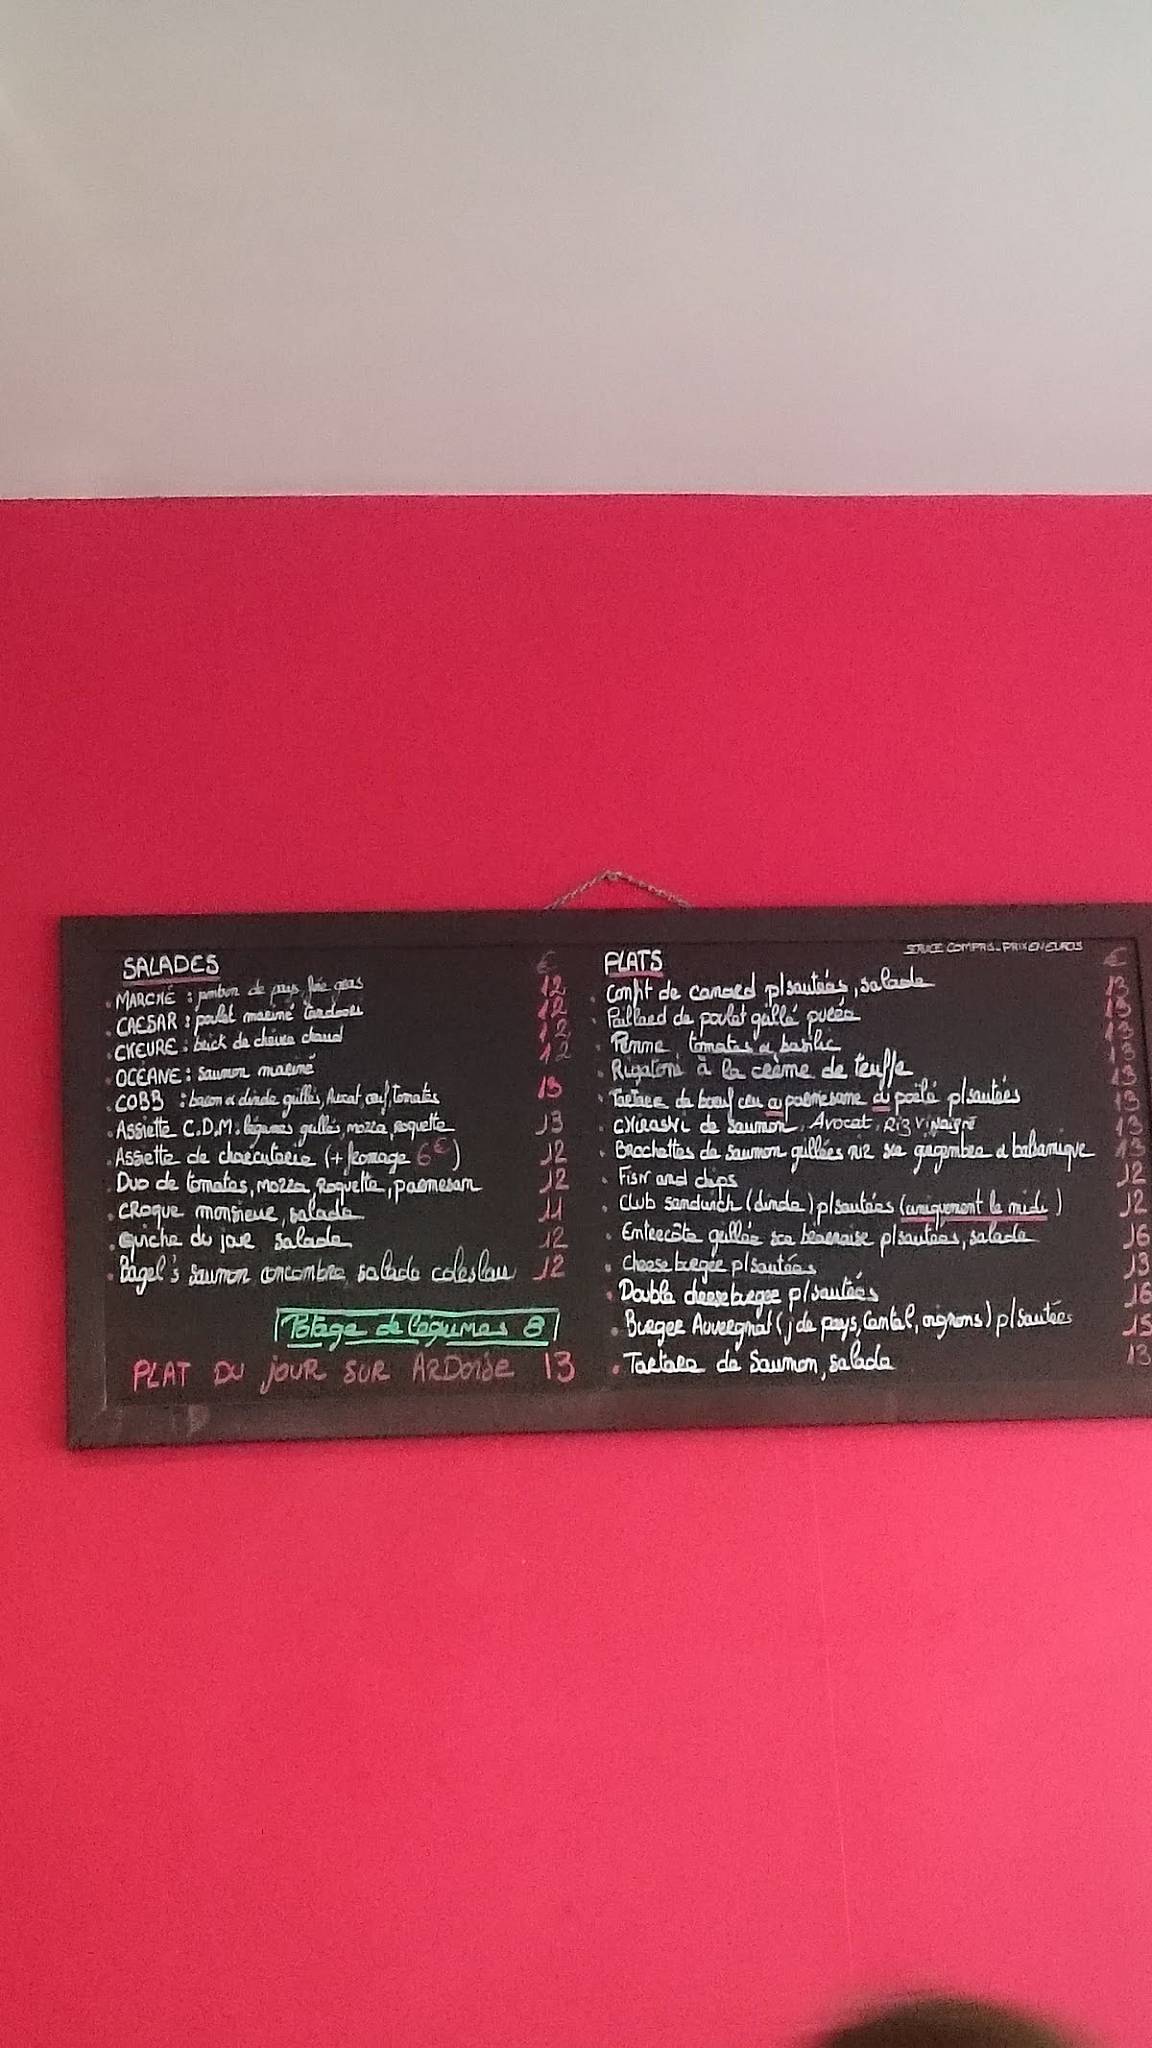 SALADES €
MARCHÉ : jambon de pays, foie gras 12
CAESAR : poulet mariné tandoori 12
CHEVRE : brick de chèvre chaud 12
OCEANE : saumon mariné 12
COBB : bacon & dinde grillés, Avocat, œuf, tomates 13
Assiette C.D.M. légumes grillés, mozza, roquette 13
Assiette de charcuterie (+ fromage 6€) 12
Duo de tomates, mozza, Roquette, parmesan 12
croque monsieur, salade 11
quiche du jour salade 12
Bagel's saumon concombre salade coleslaw 12
Potage de légumes 8
PLAT DU JOUR SUR ARDOISE 13
SERVICE COMPRIS - PRIX EN EUROS
PLATS €
Confit de canard p/sautées, salade 13
Paillard de poulet grillé purée 13
Penne tomates & basilic 13
Rigatoni à la crème de truffe 13
Tartare de bœuf cru ou parmesane ou poêlé p/sautées 13
CHIRASHI de saumon, Avocat, Riz vinaigré 13
Brochettes de saumon grillées riz sce gingembre & balsamique 13
Fish and chips 12
Club sandwich (dinde) p/sautées (uniquement le midi) 12
Entrecôte grillée sce béarnaise p/sautées, salade 16
Cheese burger p/sautées 13
Double cheeseburger p/sautées 16
Burger Auvergnat (j de pays, Cantal, oignons) p/sautées 15
Tartare de Saumon, salade 13